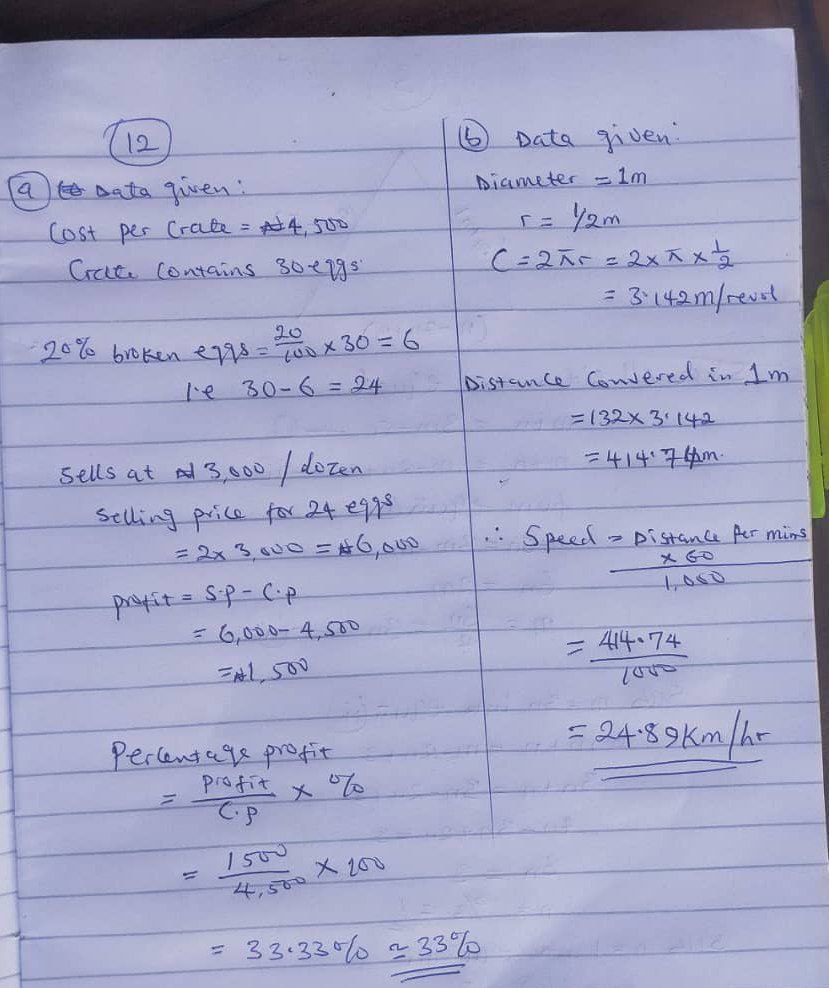 12
(a) Data given:
Cost per Crate = ₦4,500
Crate Contains 30 eggs
20% broken eggs = 20/100 × 30 = 6
i.e 30 - 6 = 24
Sells at ₦3,000 / dozen
Selling price for 24 eggs
= 2 × 3,000 = ₦6,000
profit = S.p - C.p
= 6,000 - 4,500
= ₦1,500
Percentage profit
= profit/C.p × %
= 1500/4,500 × 100
= 33.33% ≃ 33%
(b) Data given:
Diameter = 1m
r = 1/2m
C = 2πr = 2 × π × 1/2
= 3.142m/revol
Distance Convered in 1m
= 132 × 3.142
= 414.74m.
∴ Speed = Distance Per mins × 60 / 1,000
= 414.74/1000
= 24.89Km/hr